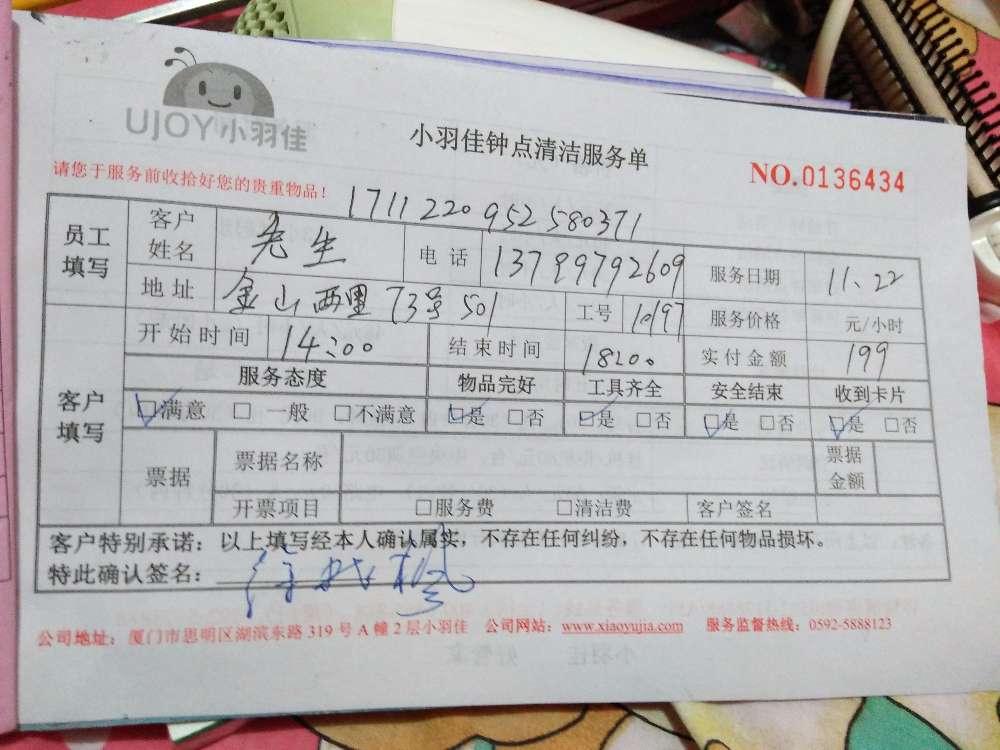 UJOY小羽佳
小羽佳钟点清洁服务单
NO.0136434
请您于服务前收拾好您的贵重物品！
1711220952580371
员工填写 客户姓名 先生 电话 13799792609 服务日期 11.22
地址 金山西里73号501 工号 10197 服务价格 元/小时
开始时间 14:00 结束时间 18:00 实付金额 199
客户填写 服务态度 物品完好 工具齐全 安全结束 收到卡片
☑满意 □一般 □不满意 ☑是 □否 ☑是 □否 ☑是 □否 ☑是 □否
票据 票据名称 票据金额
开票项目 □服务费 □清洁费 客户签名
客户特别承诺：以上填写经本人确认属实，不存在任何纠纷，不存在任何物品损坏。
特此确认签名：
公司地址：厦门市思明区湖滨东路319号A幢2层小羽佳 公司网站：www.xiaoyujia.com 服务监督热线：0592-5888123